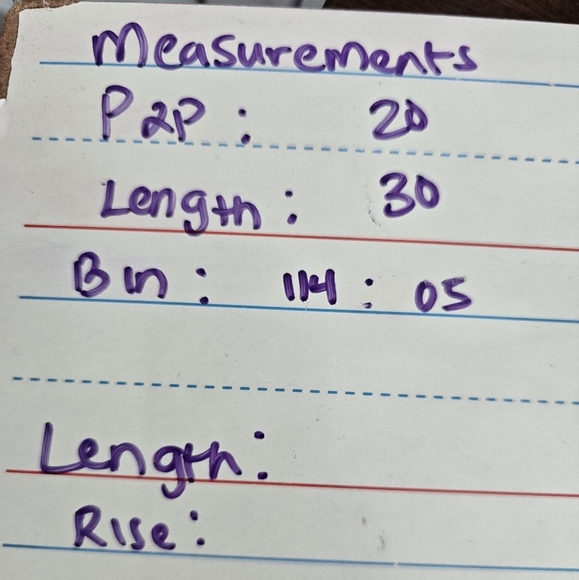 Measurements
P2P: 20
Length: 30
Bin: 114: 05
Length:
Rise: